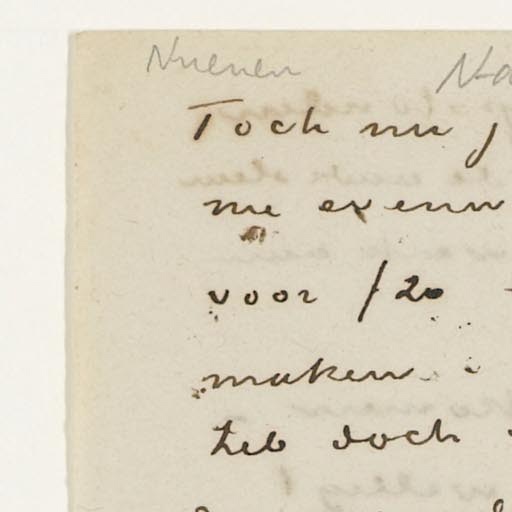 Nuenen
Toch nu
me evenw
voor f 20
maken
heb doch